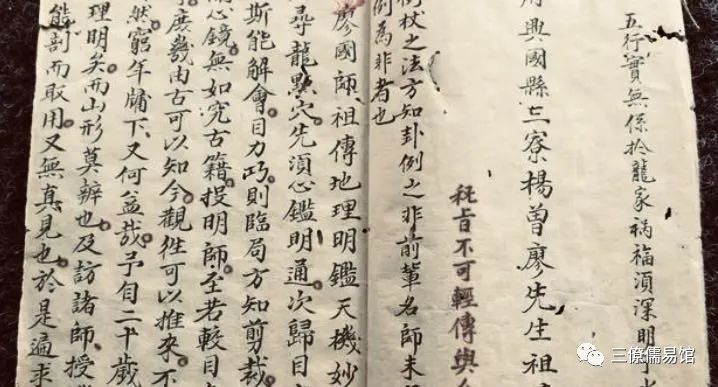 五行實無係扵龍家禍福湏深明
興國縣三寮楊曾廖先生祖
秘旨不可輕傳與
杖之法方知卦例之非前輩名師未
例為非者也
廖國師祖傳地理明鑑天機妙
尋龍點穴先湏心鑑明通次歸目
斯能解會目巧則臨局方知剪裁
心鏡無如究古籍投明師至若較目
庶幾由古可以知今觀徃可以推來不
然窮年牖下又何益哉予自二十歲
理明矣而山形莫辨也及訪諸師授
能剖而取用又無真見也於是遍求
三僚儒易馆